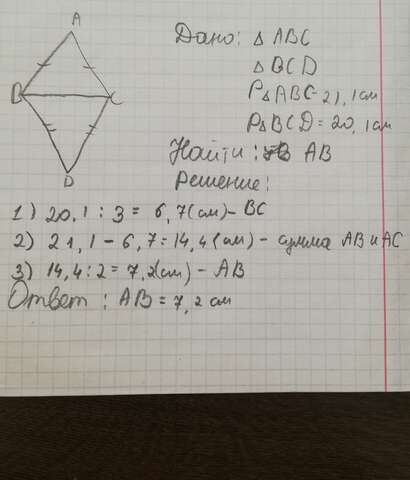 A
Дано: △ ABC
△ BCD
B
C
P△ABC=21,1см
P△BCD=20,1см
Найти: AB
D
Решение:
1) 20,1 : 3 = 6,7(см)-BC
2) 21,1-6,7=14,4(см)-сумма AB и AC
3) 14,4:2=7,2(см)-AB
Ответ: AB=7,2см